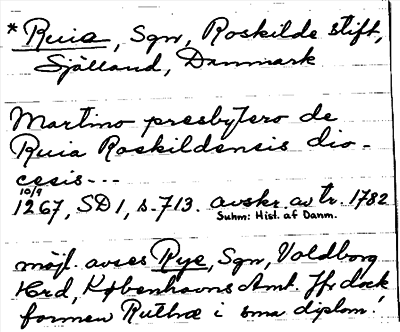 * Ruia, Sgn, Roskilde stift,
Själland, Danmark
Martino presbytero de
Ruia Roskildensis dio-
cesis---
10/9
1267, SD 1, s. 713. avskr. av tr. 1782
Suhm: Hist. af Danm.
möjl. avses Rye, Sgn, Voldborg
Hrd, Københavns Amt. Jfr dock
formen Ruthæ i sma diplom!